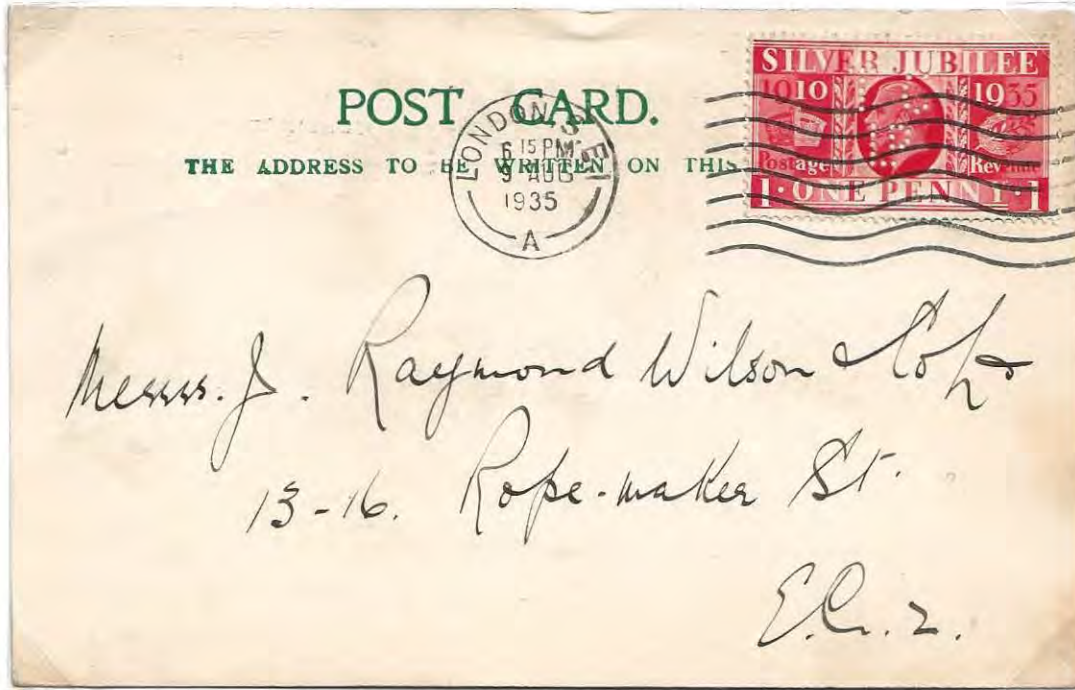 POST CARD.
THE ADDRESS TO BE WRITTEN ON THIS
LONDON, S.E.1
6 15 PM
9 AUG
1935
A
SILVER JUBILEE
1910 1935
Postage Revenue
1 · ONE PENNY · 1
Messrs. J. Raymond Wilson & Co Ld
13-16. Rope-maker St.
E.C. 2.